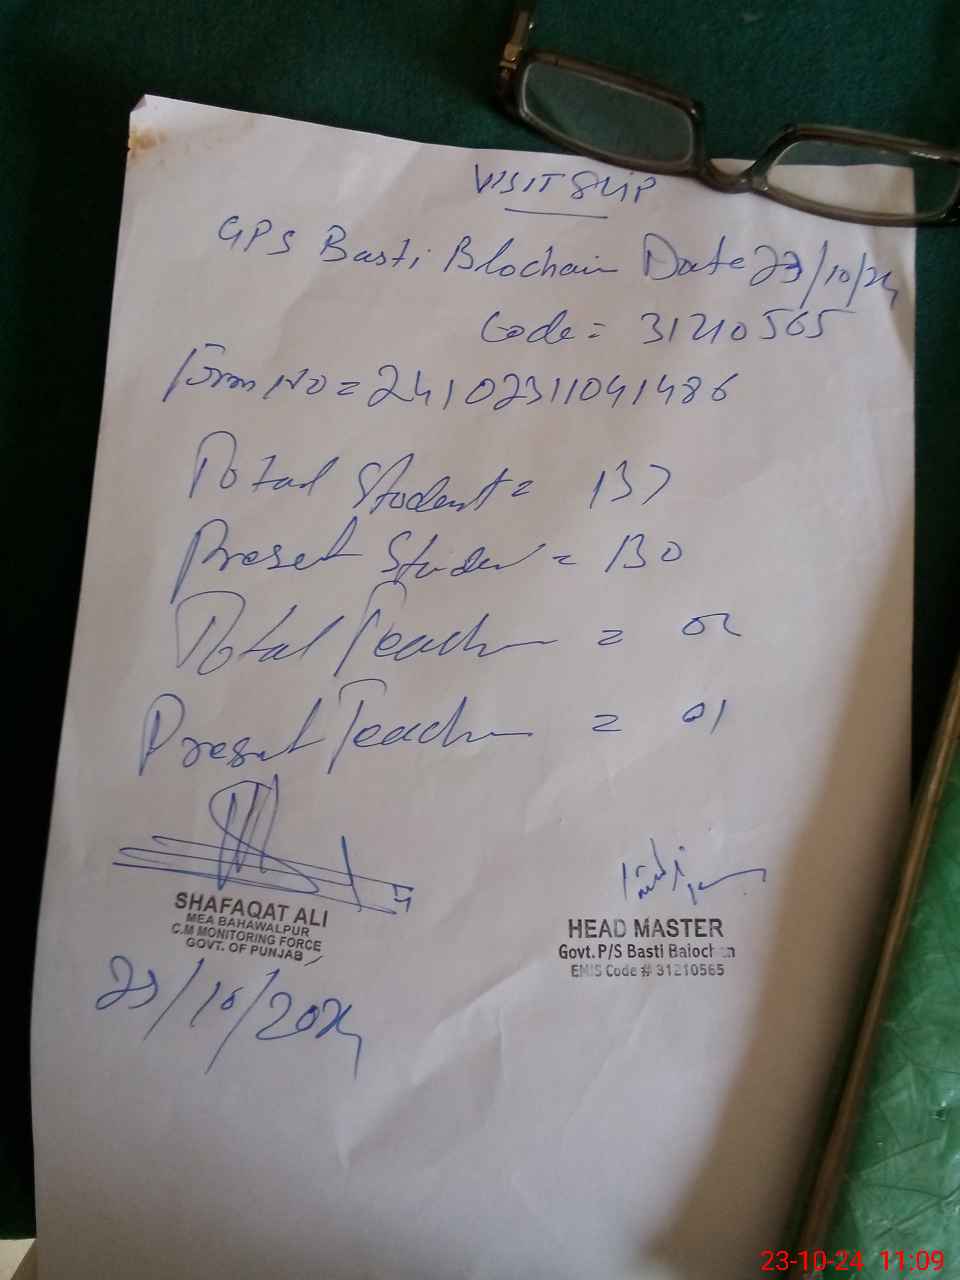 VISIT SLIP
GPS Basti Blochain Date 23/10/24
Code = 31210565
Form No = 24102311041486
Total Student = 137
Preset Studen = 130
Total Teacher = 02
Preset Teacher = 01
SHAFAQAT ALI
MEA BAHAWALPUR
C.M MONITORING FORCE
GOVT. OF PUNJAB
23/10/2024
HEAD MASTER
Govt. P/S Basti Balochan
EMIS Code # 31210565
23-10-24 11:09